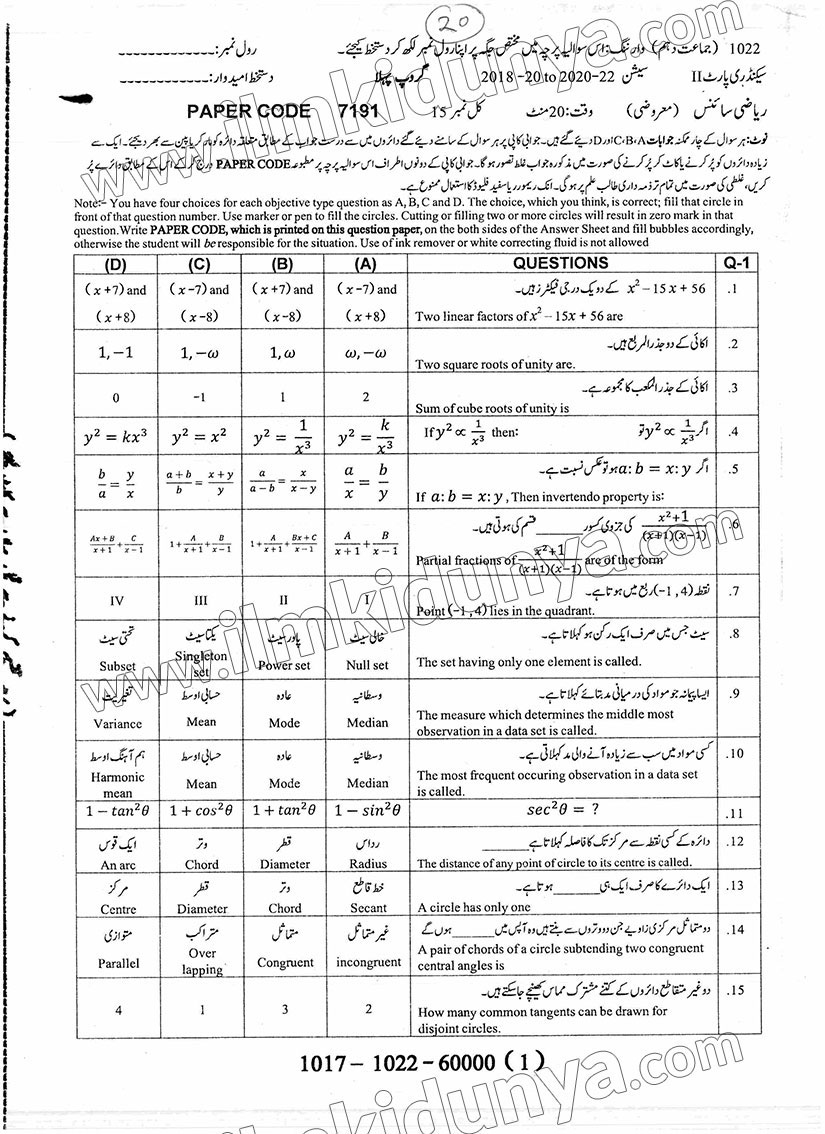 20
1022 (جماعت دہم) وارننگ: اس سوالیہ پرچہ میں مختص جگہ پر اپنا رول نمبر لکھ کر دستخط کیجئے۔ رول نمبر:
سیکنڈری پارٹ II سیشن 2018-20 to 2020-22 گروپ پہلا دستخط امیدوار:
ریاضی سائنس (معروضی) وقت: 20 منٹ کل نمبر 15 PAPER CODE 7191
نوٹ: ہر سوال کے چار ممکنہ جوابات A،B،C اور D دیئے گئے ہیں۔ جوابی کاپی پر ہر سوال کے سامنے دیئے گئے دائروں میں سے درست جواب کے مطابق متعلقہ دائرہ کو مارکر یا پین سے بھر دیجئے۔ ایک سے
زیادہ دائروں کو پُر کرنے یا کاٹ کر پُر کرنے کی صورت میں مذکورہ جواب غلط تصور ہوگا۔ جوابی کاپی کے دونوں اطراف اس سوالیہ پرچہ پر مطبوعہ PAPER CODE درج کر کے اس کے مطابق دائرے پُر
کریں، غلطی کی صورت میں تمام تر ذمہ داری طالب علم پر ہوگی۔ انک ریموور یا سفید فلیوڈ کا استعمال ممنوع ہے۔
Note:- You have four choices for each objective type question as A, B, C and D. The choice, which you think, is correct; fill that circle in
front of that question number. Use marker or pen to fill the circles. Cutting or filling two or more circles will result in zero mark in that
question.Write PAPER CODE, which is printed on this question paper, on the both sides of the Answer Sheet and fill bubbles accordingly,
otherwise the student will be responsible for the situation. Use of ink remover or white correcting fluid is not allowed
(D) (C) (B) (A) QUESTIONS Q-1
(x+7) and (x-7) and (x+7) and (x-7) and x² – 15x + 56 کے دو یک درجی فیکٹرز ہیں۔ .1
(x+8) (x-8) (x-8) (x+8) Two linear factors of x² – 15x + 56 are
اکائی کے دو جذر المربع ہیں۔ .2
1, −1 1, −ω 1, ω ω, −ω Two square roots of unity are.
اکائی کے جذر المکعب کا مجموعہ ہے۔ .3
0 -1 1 2 Sum of cube roots of unity is
y² = kx³ y² = x² y² = 1/x³ y² = k/x³ If y² ∝ 1/x³ then: اگر y² ∝ 1/x³ تو .4
اگر a: b = x: y ہو تو عکس نسبت ہے۔ .5
b/a = y/x (a+b)/b = (x+y)/y a/(a−b) = x/(x−y) a/x = b/y If a: b = x: y, Then invertendo property is:
(x²+1)/((x+1)(x−1)) کی جزوی کسور ______ قسم کی ہوتی ہیں۔ .6
(Ax+B)/(x+1) + C/(x−1) 1 + A/(x+1) + B/(x−1) 1 + A/(x+1) + (Bx+C)/(x−1) A/(x+1) + B/(x−1) Partial fractions of (x²+1)/((x+1)(x−1)) are of the form
نقطہ (-1, 4) ربع میں ہوتا ہے۔ .7
IV III II I Point (-1, 4) lies in the quadrant.
تحتی سیٹ یکتا سیٹ پاور سیٹ خالی سیٹ سیٹ جس میں صرف ایک رکن ہو کہلاتا ہے۔ .8
Subset Singleton set Power set Null set The set having only one element is called.
تغیریت حسابی اوسط عادہ وسطانیہ ایسا پیمانہ جو مواد کی درمیانی مد بتائے کہلاتا ہے۔ .9
Variance Mean Mode Median The measure which determines the middle most
observation in a data set is called.
ہم آہنگ اوسط حسابی اوسط عادہ وسطانیہ کسی مواد میں سب سے زیادہ آنے والی مد کہلاتی ہے۔ .10
Harmonic mean Mean Mode Median The most frequent occuring observation in a data set
is called.
1 − tan²θ 1 + cos²θ 1 + tan²θ 1 − sin²θ sec²θ = ? .11
ایک قوس وتر قطر رداس دائرہ کے کسی نقطہ سے مرکز تک کا فاصلہ کہلاتا ہے ______ .12
An arc Chord Diameter Radius The distance of any point of circle to its centre is called.
مرکز قطر وتر خط قاطع ایک دائرے کا صرف ایک ہی ______ ہوتا ہے۔ .13
Centre Diameter Chord Secant A circle has only one
متوازی متراکب متماثل غیر متماثل دو متماثل مرکزی زاویے جن دو وتروں سے بنتے ہیں وہ آپس میں ______ ہوں گے .14
Parallel Over lapping Congruent incongruent A pair of chords of a circle subtending two congruent
central angles is
دو غیر متقاطع دائروں کے کتنے مشترک مماس کھینچے جا سکتے ہیں۔ .15
4 1 3 2 How many common tangents can be drawn for
disjoint circles.
1017 – 1022 – 60000 (1)
www.ilmkidunya.com
www.ilmkidunya.com
ilmkidunya.com